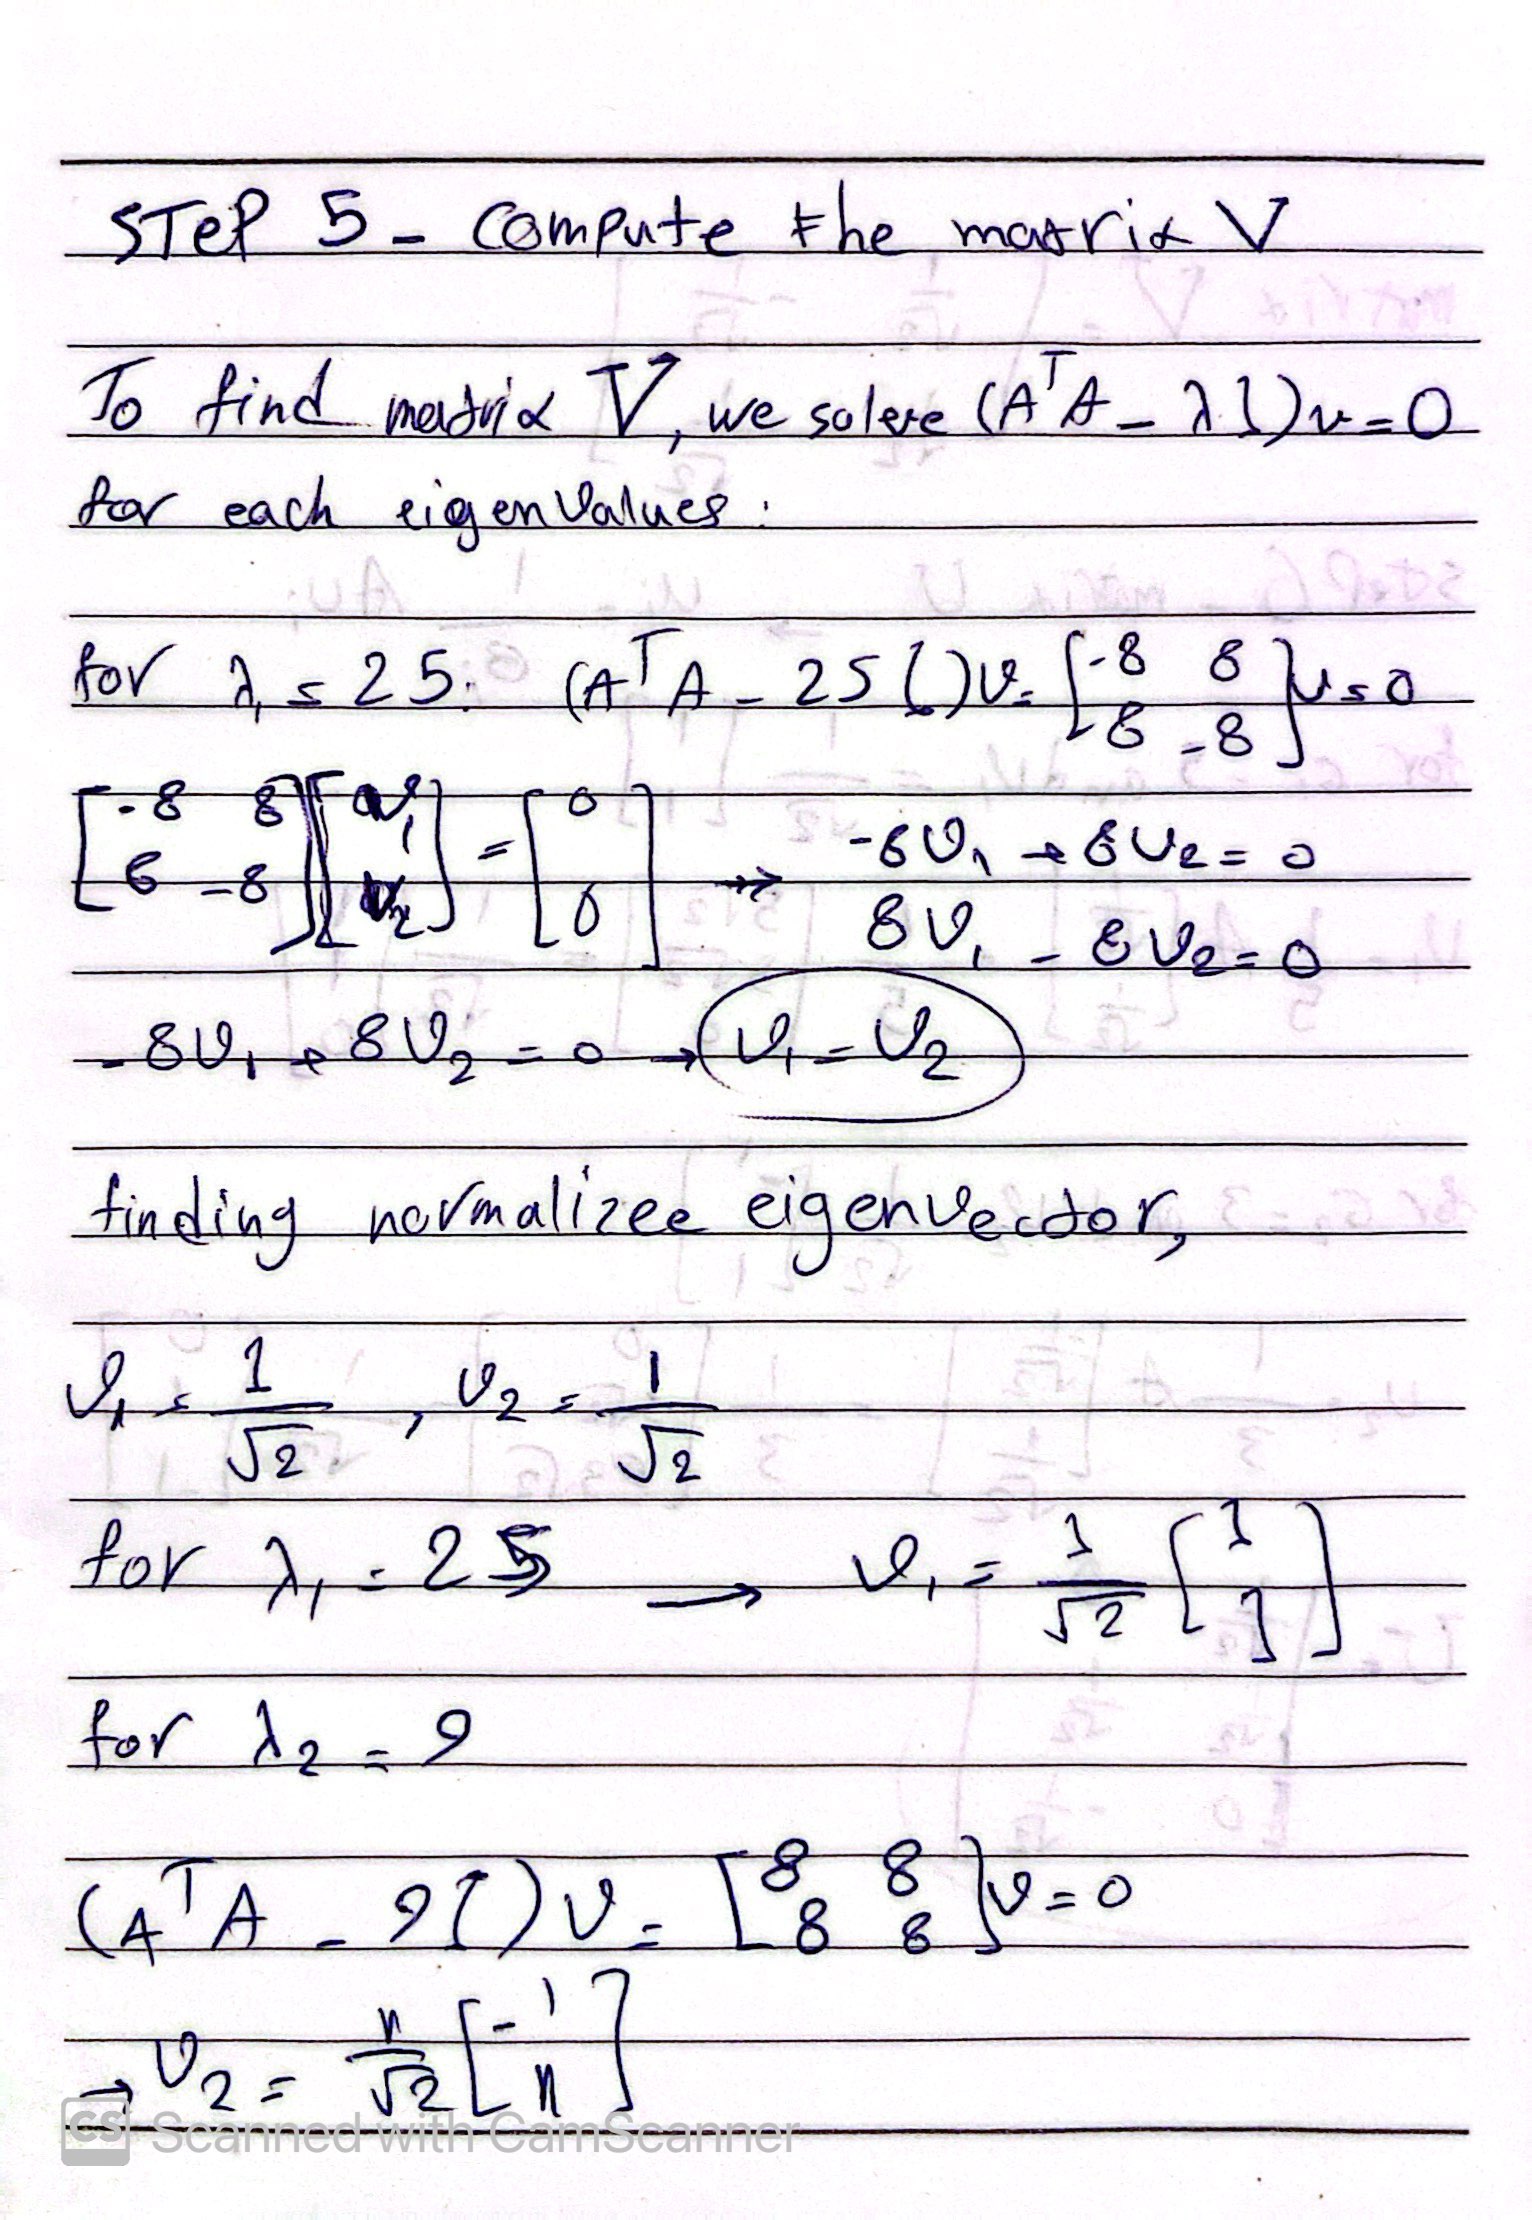 STEP 5 - Compute the matrix V
To find matrix V, we solve (AᵀA - λI)v = 0
for each eigenvalues:
for λ₁ = 25: (AᵀA - 25I)v = [-8 8; 8 -8]v = 0
[-8 8; 8 -8][v₁; v₂] = [0; 0] → -8v₁ + 8v₂ = 0
8v₁ - 8v₂ = 0
-8v₁ + 8v₂ = 0 → v₁ = v₂
finding normalizee eigenvector,
v₁ = 1/√2, v₂ = 1/√2
for λ₁ = 25 → v₁ = 1/√2 [1; 1]
for λ₂ = 9
(AᵀA - 9I)v = [8 8; 8 8]v = 0
→ v₂ = 1/√2 [-1; 1]
CS Scanned with CamScanner